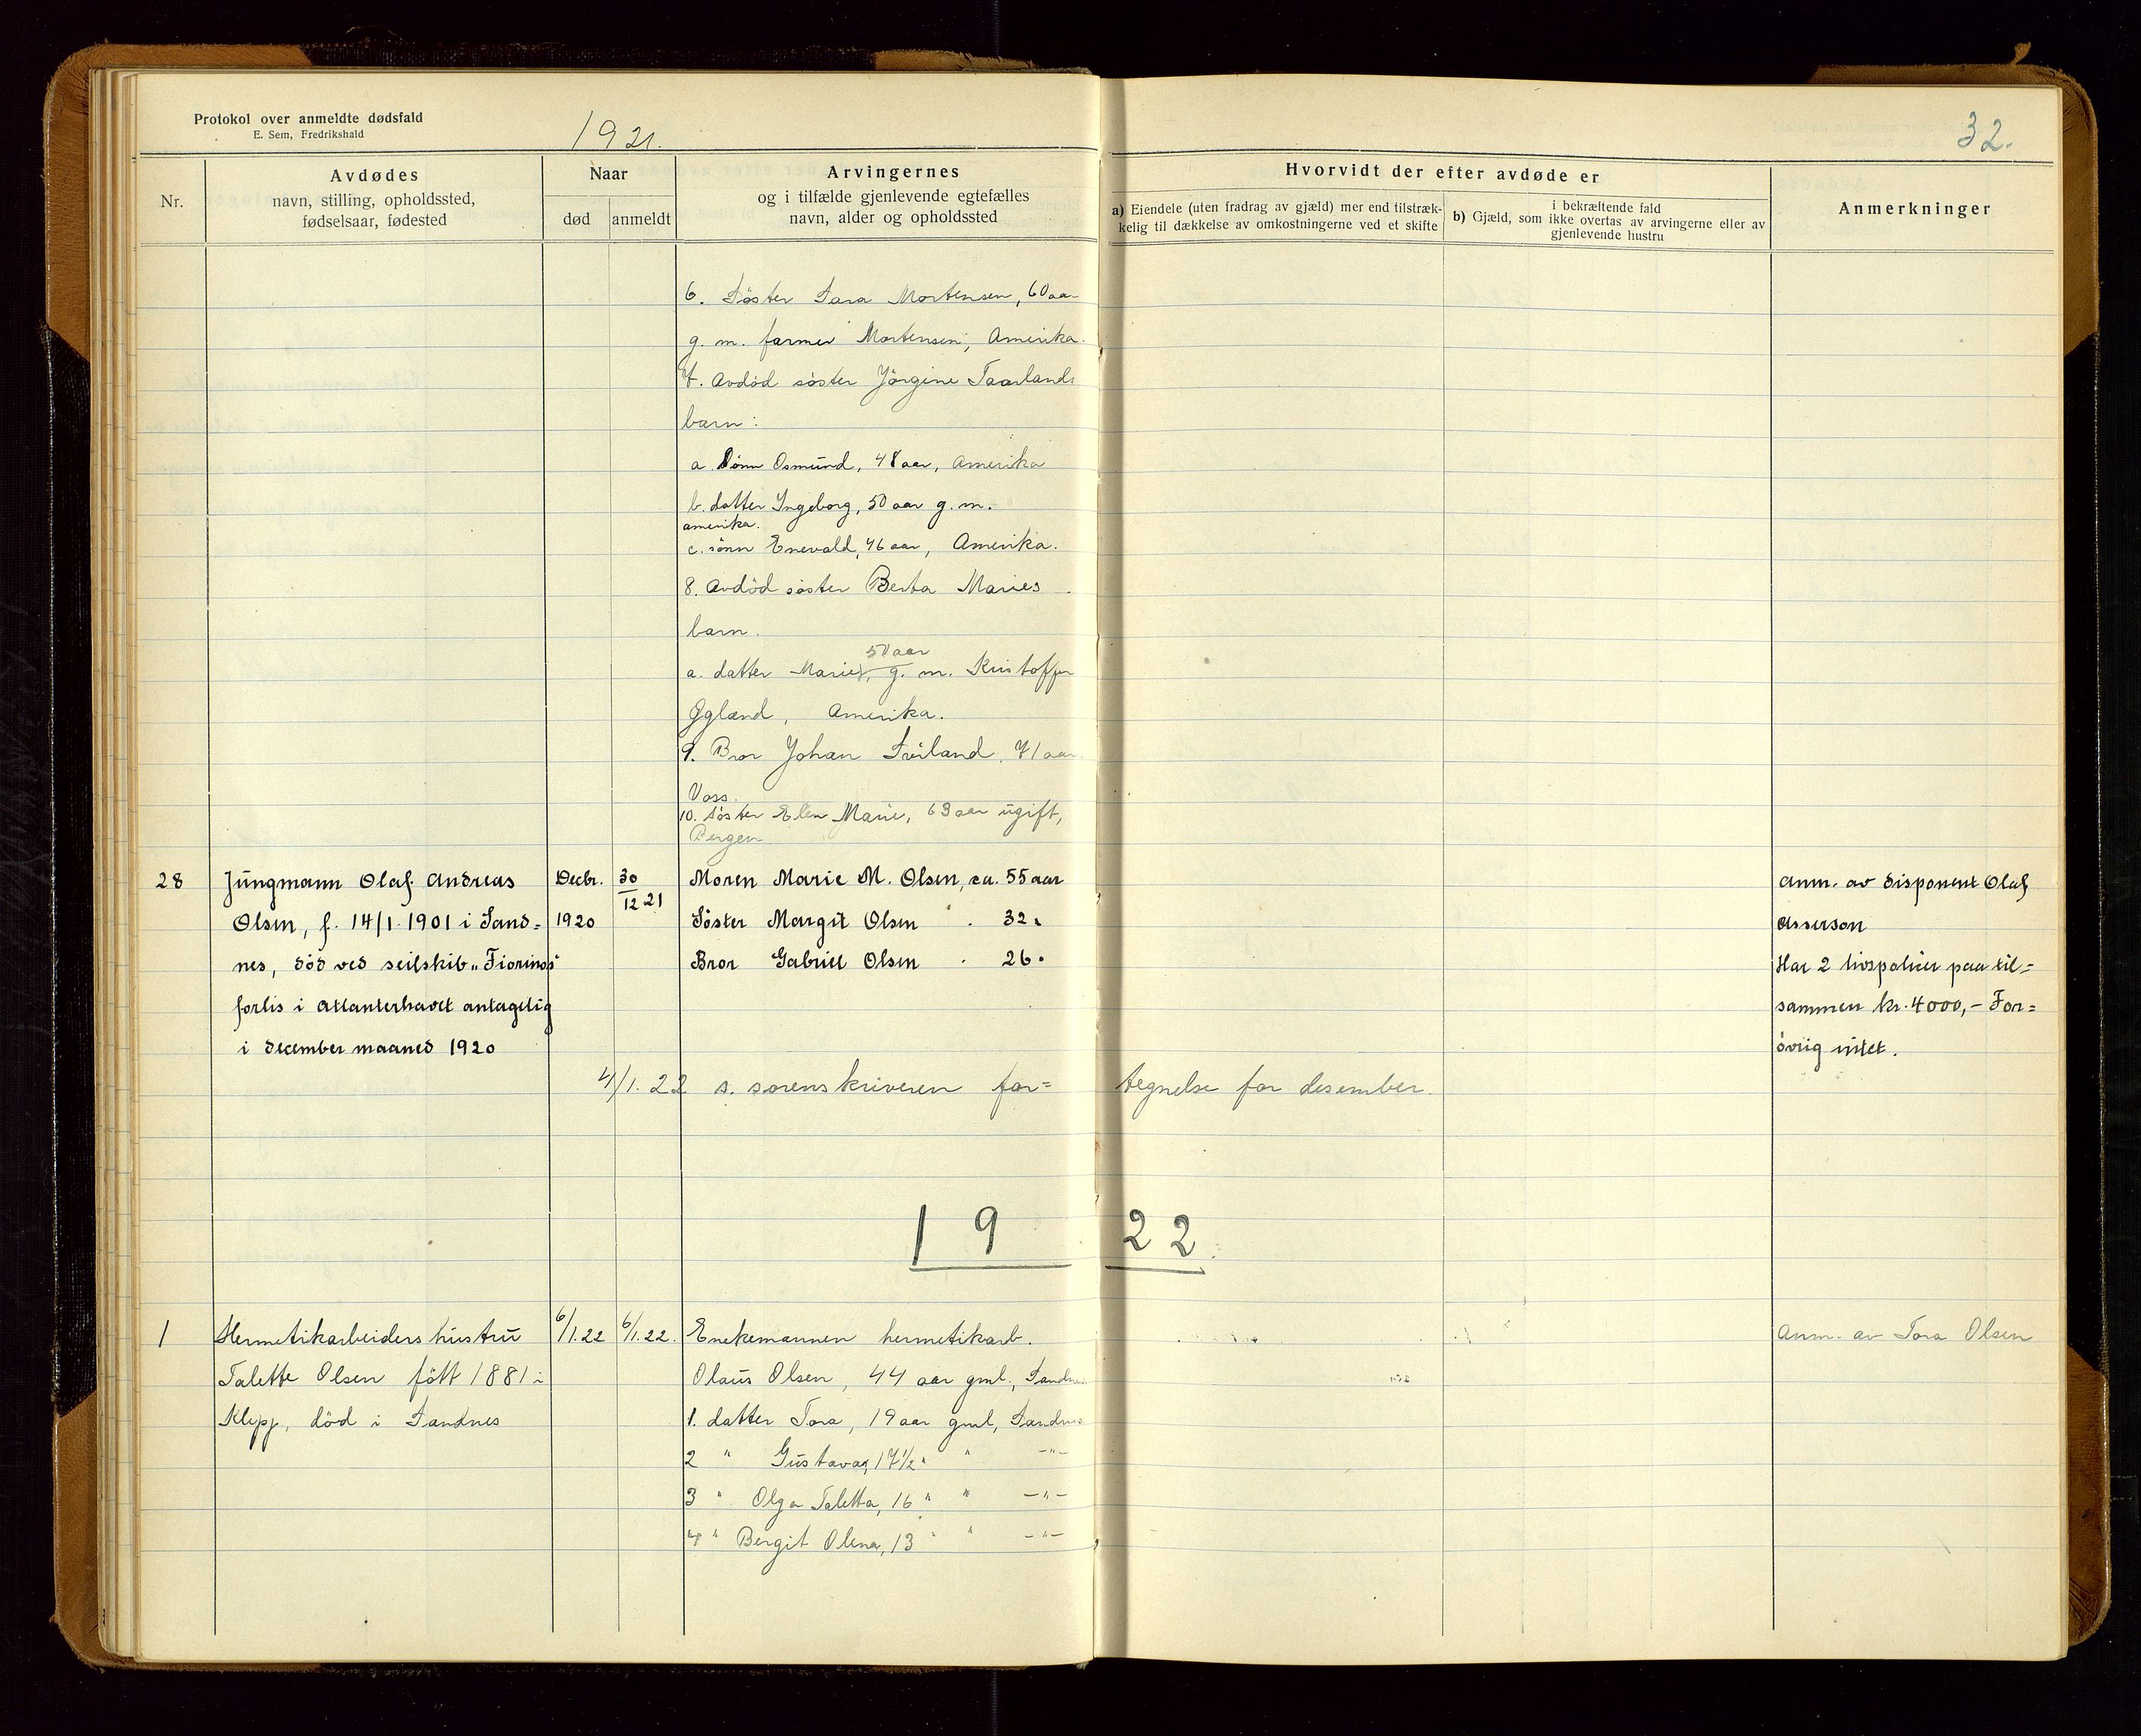 Protokol over anmeldte dødsfald
E. Sem, Fredrikshald
1921.
32.
Nr.
Avdødes
navn, stilling, opholdssted,
fødselsaar, fødested
Naar
død
anmeldt
Arvingernes
og i tilfælde gjenlevende egtefælles
navn, alder og opholdssted
Hvorvidt der efter avdøde er
a) Eiendele (uten fradrag av gjæld) mer end tilstræk-
kelig til dækkelse av omkostningerne ved et skifte
i bekræftende fald
b) Gjæld, som ikke overtas av arvingerne eller av
gjenlevende hustru
Anmerkninger
6. Søster Sara Mortensen, 60 aar
g. m. farmer Mortensen, Amerika.
7. Avdød søster Jörgine Taarlands
barn:
a. Sönn Osmund, 48 aar, Amerika
b. datter Ingeborg, 50 aar g. m.
amerika.
c. sönn Enevald, 46 aar, Amerika.
8. Avdöd söster Berta Maries
barn.
50 aar
a. datter Marie, g. m. Kristoffer
Ggland, Amerika.
9. Bror Johan Sviland, 71 aar
Voss.
10. söster Elen Marie, 63 aar ugift,
Bergen
28
Jungmann Olaf Andreas
Olsen, f. 14/1 1901 i Sand=
nes, död ved seilskib „Fiorino's"
forlis i Atlanterhavet antagelig
i december maaned 1920
Decbr.
1920
30/12 21
Moren Marie M. Olsen, ca. 55 aar
Söster Margit Olsen " 32 "
Bror Gabriel Olsen " 26 "
Anm. av disponent Olaf
Asserson
Har 2 livspolicer paa til=
sammen kr. 4000,- For=
övrig intet.
4/1. 22 s. sorenskriveren for= tegnelse for desember.
1922.
1
Hermetikarbeiders hustru
Talette Olsen fött 1881 i
Klepp, död i Sandnes
6/1.22
6/1.22.
Enekemannen hermetikarb.
Olaus Olsen, 44 aar gml., Sandnes
1. datter Tora, 19 aar gml, Sandnes
2 " Gustava, 17½ " " -"-
3 " Olga Taletta, 16 " " -"-
4 " Bergit Olena, 13 " " -"-
Anm. av Tora Olsen